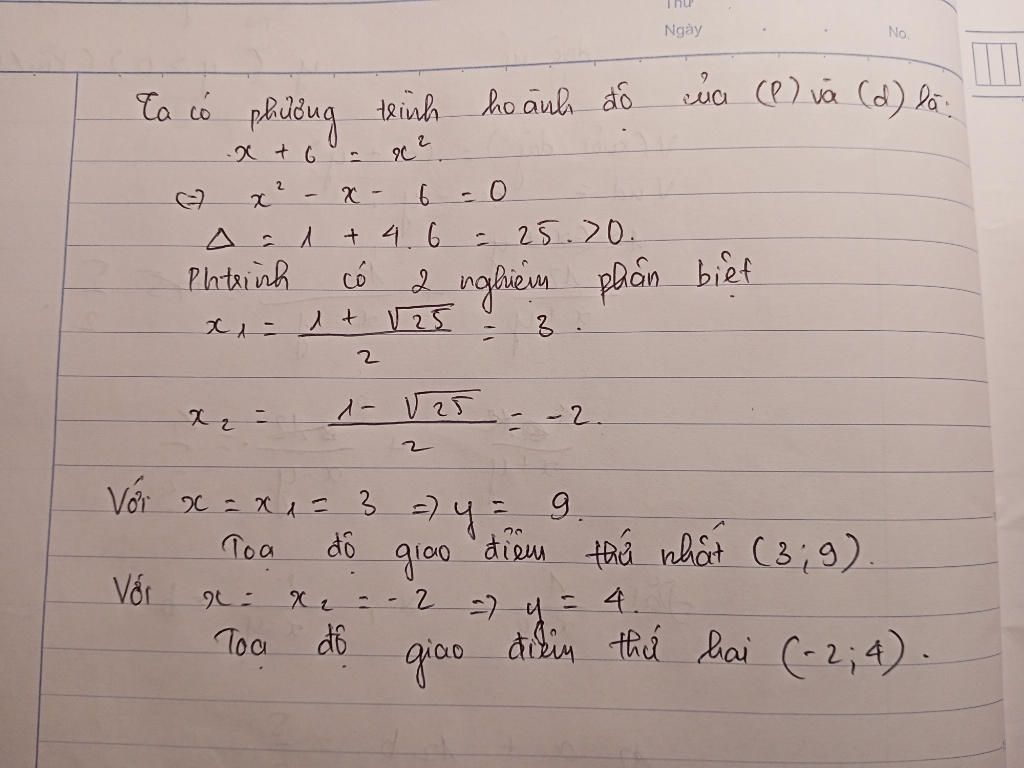 Thứ
Ngày . . No.
Ta có phương trình hoành độ của (P) và (d) là:
x + 6 = x².
⇔ x² - x - 6 = 0
Δ = 1 + 4.6 = 25 > 0.
Phtrình có 2 nghiệm phân biệt
x₁ = (1 + √25)/2 = 3.
x₂ = (1 - √25)/2 = -2.
Với x = x₁ = 3 => y = 9.
Toạ độ giao điểm thứ nhất (3; 9).
Với x = x₂ = -2 => y = 4.
Toạ độ giao điểm thứ hai (-2; 4).